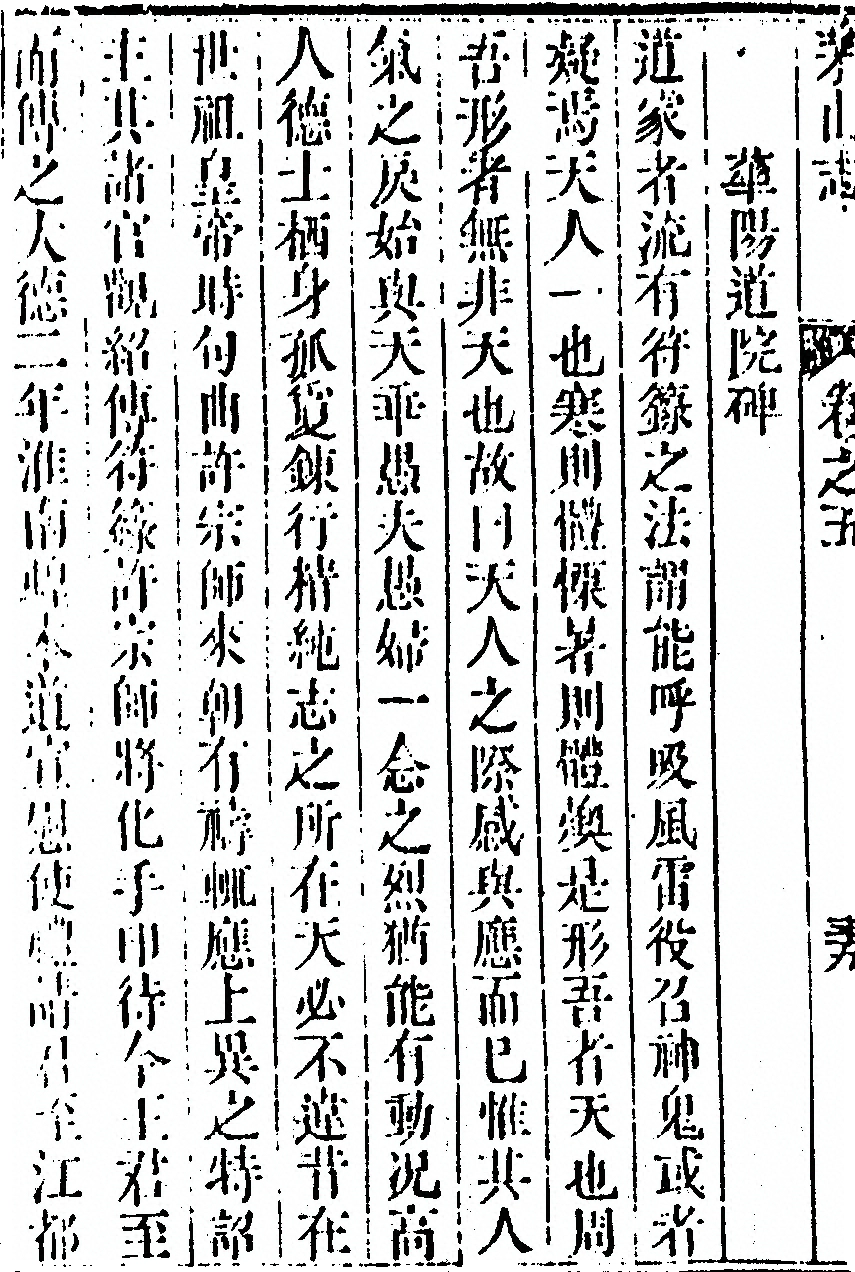 茅山志 卷之五
華陽道院碑
道家者流有符籙之法謂能呼吸風雷役召神鬼或者
疑焉天人一也寒則體慄暑則體燠是形吾者天也周
吾形者無非天也故曰天人之際感與應而已惟其人
氣之戾始與天乖愚夫愚婦一念之烈猶能有動況高
人德士栖身孤夐鍊行精純志之所在天必不違昔在
世祖皇帝時句曲許宗師來朝有禱輒應上異之特詔
主其諸宮觀紹傳符籙許宗師將化手印待今王君至
而傳之大德二年淮南蝗本道宣慰使禮請君至江都